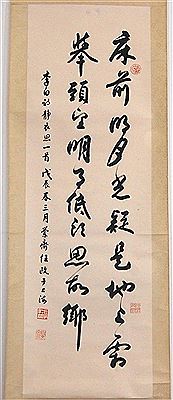 床前明月光疑是地上霜
舉頭望明月低頭思故鄉
李白詩靜夜思一首 戊辰春三月 蘭齋任政于上海